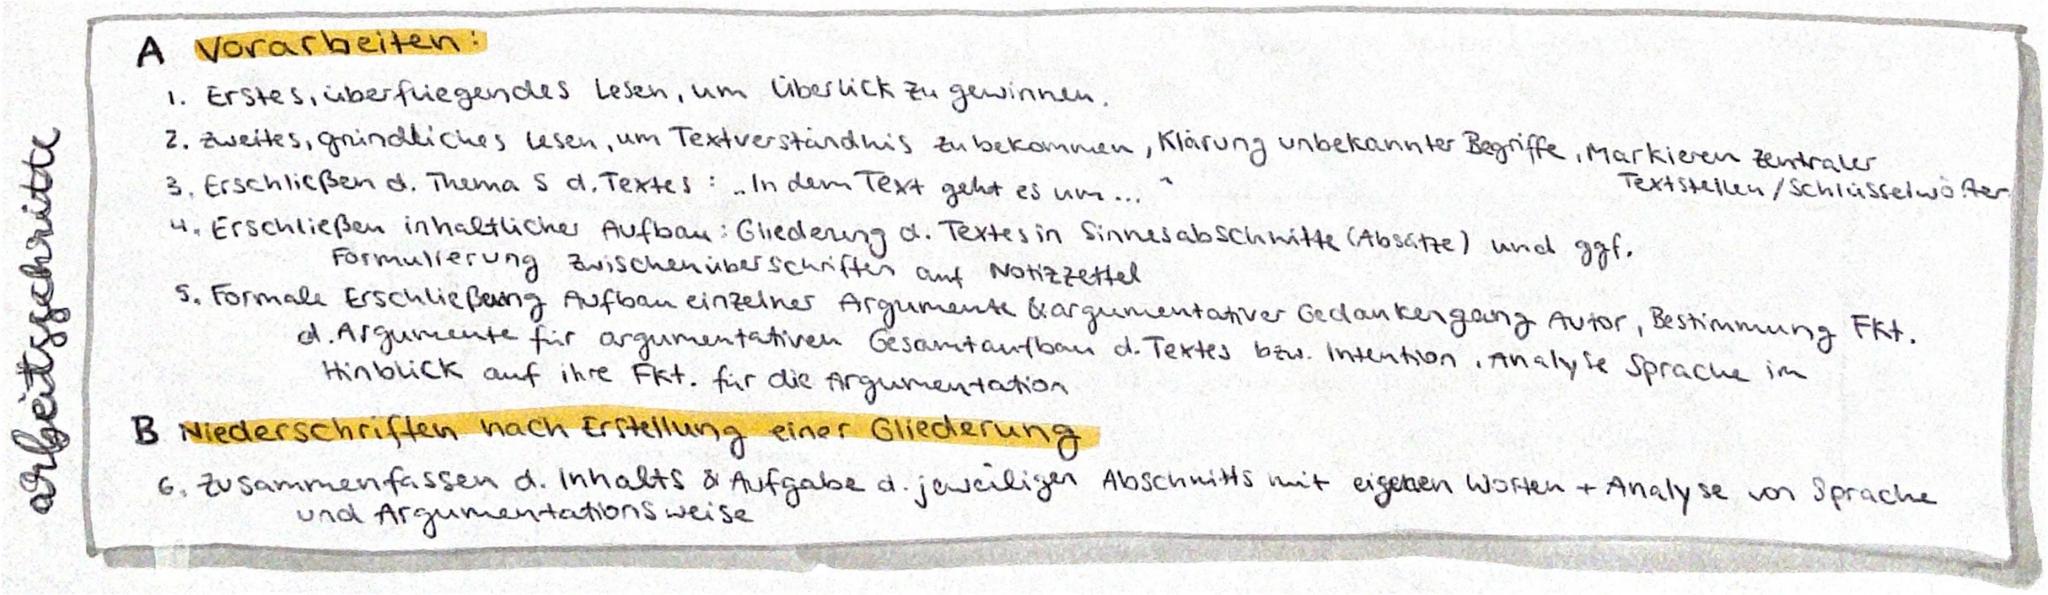 arbeitsschritte
A Vorarbeiten:
1. Erstes, überfliegendes Lesen, um Überlick zu gewinnen.
2. Zweites, gründliches Lesen, um Textverständnis zu bekommen, Klärung unbekannter Begriffe, Markieren zentraler
Textstellen/Schlüsselwörter
3. Erschließen d. Themas d. Textes: „In dem Text geht es um..."
4. Erschließen inhaltlicher Aufbau: Gliederung d. Textes in Sinnesabschnitte (Absätze) und ggf.
Formulierung Zwischenüberschriften auf Notizzettel
5. Formale Erschließung Aufbau einzelner Argumente & argumentativer Gedankengang Autor, Bestimmung Fkt.
d. Argumente für argumentativen Gesamtaufbau d. Textes bzw. Intention, Analyse Sprache im
Hinblick auf ihre Fkt. für die Argumentation
B Niederschriften nach Erstellung einer Gliederung
6. Zusammenfassen d. Inhalts & Aufgabe d. jeweiligen Abschnitts mit eigenen Worten + Analyse von Sprache
und Argumentationsweise